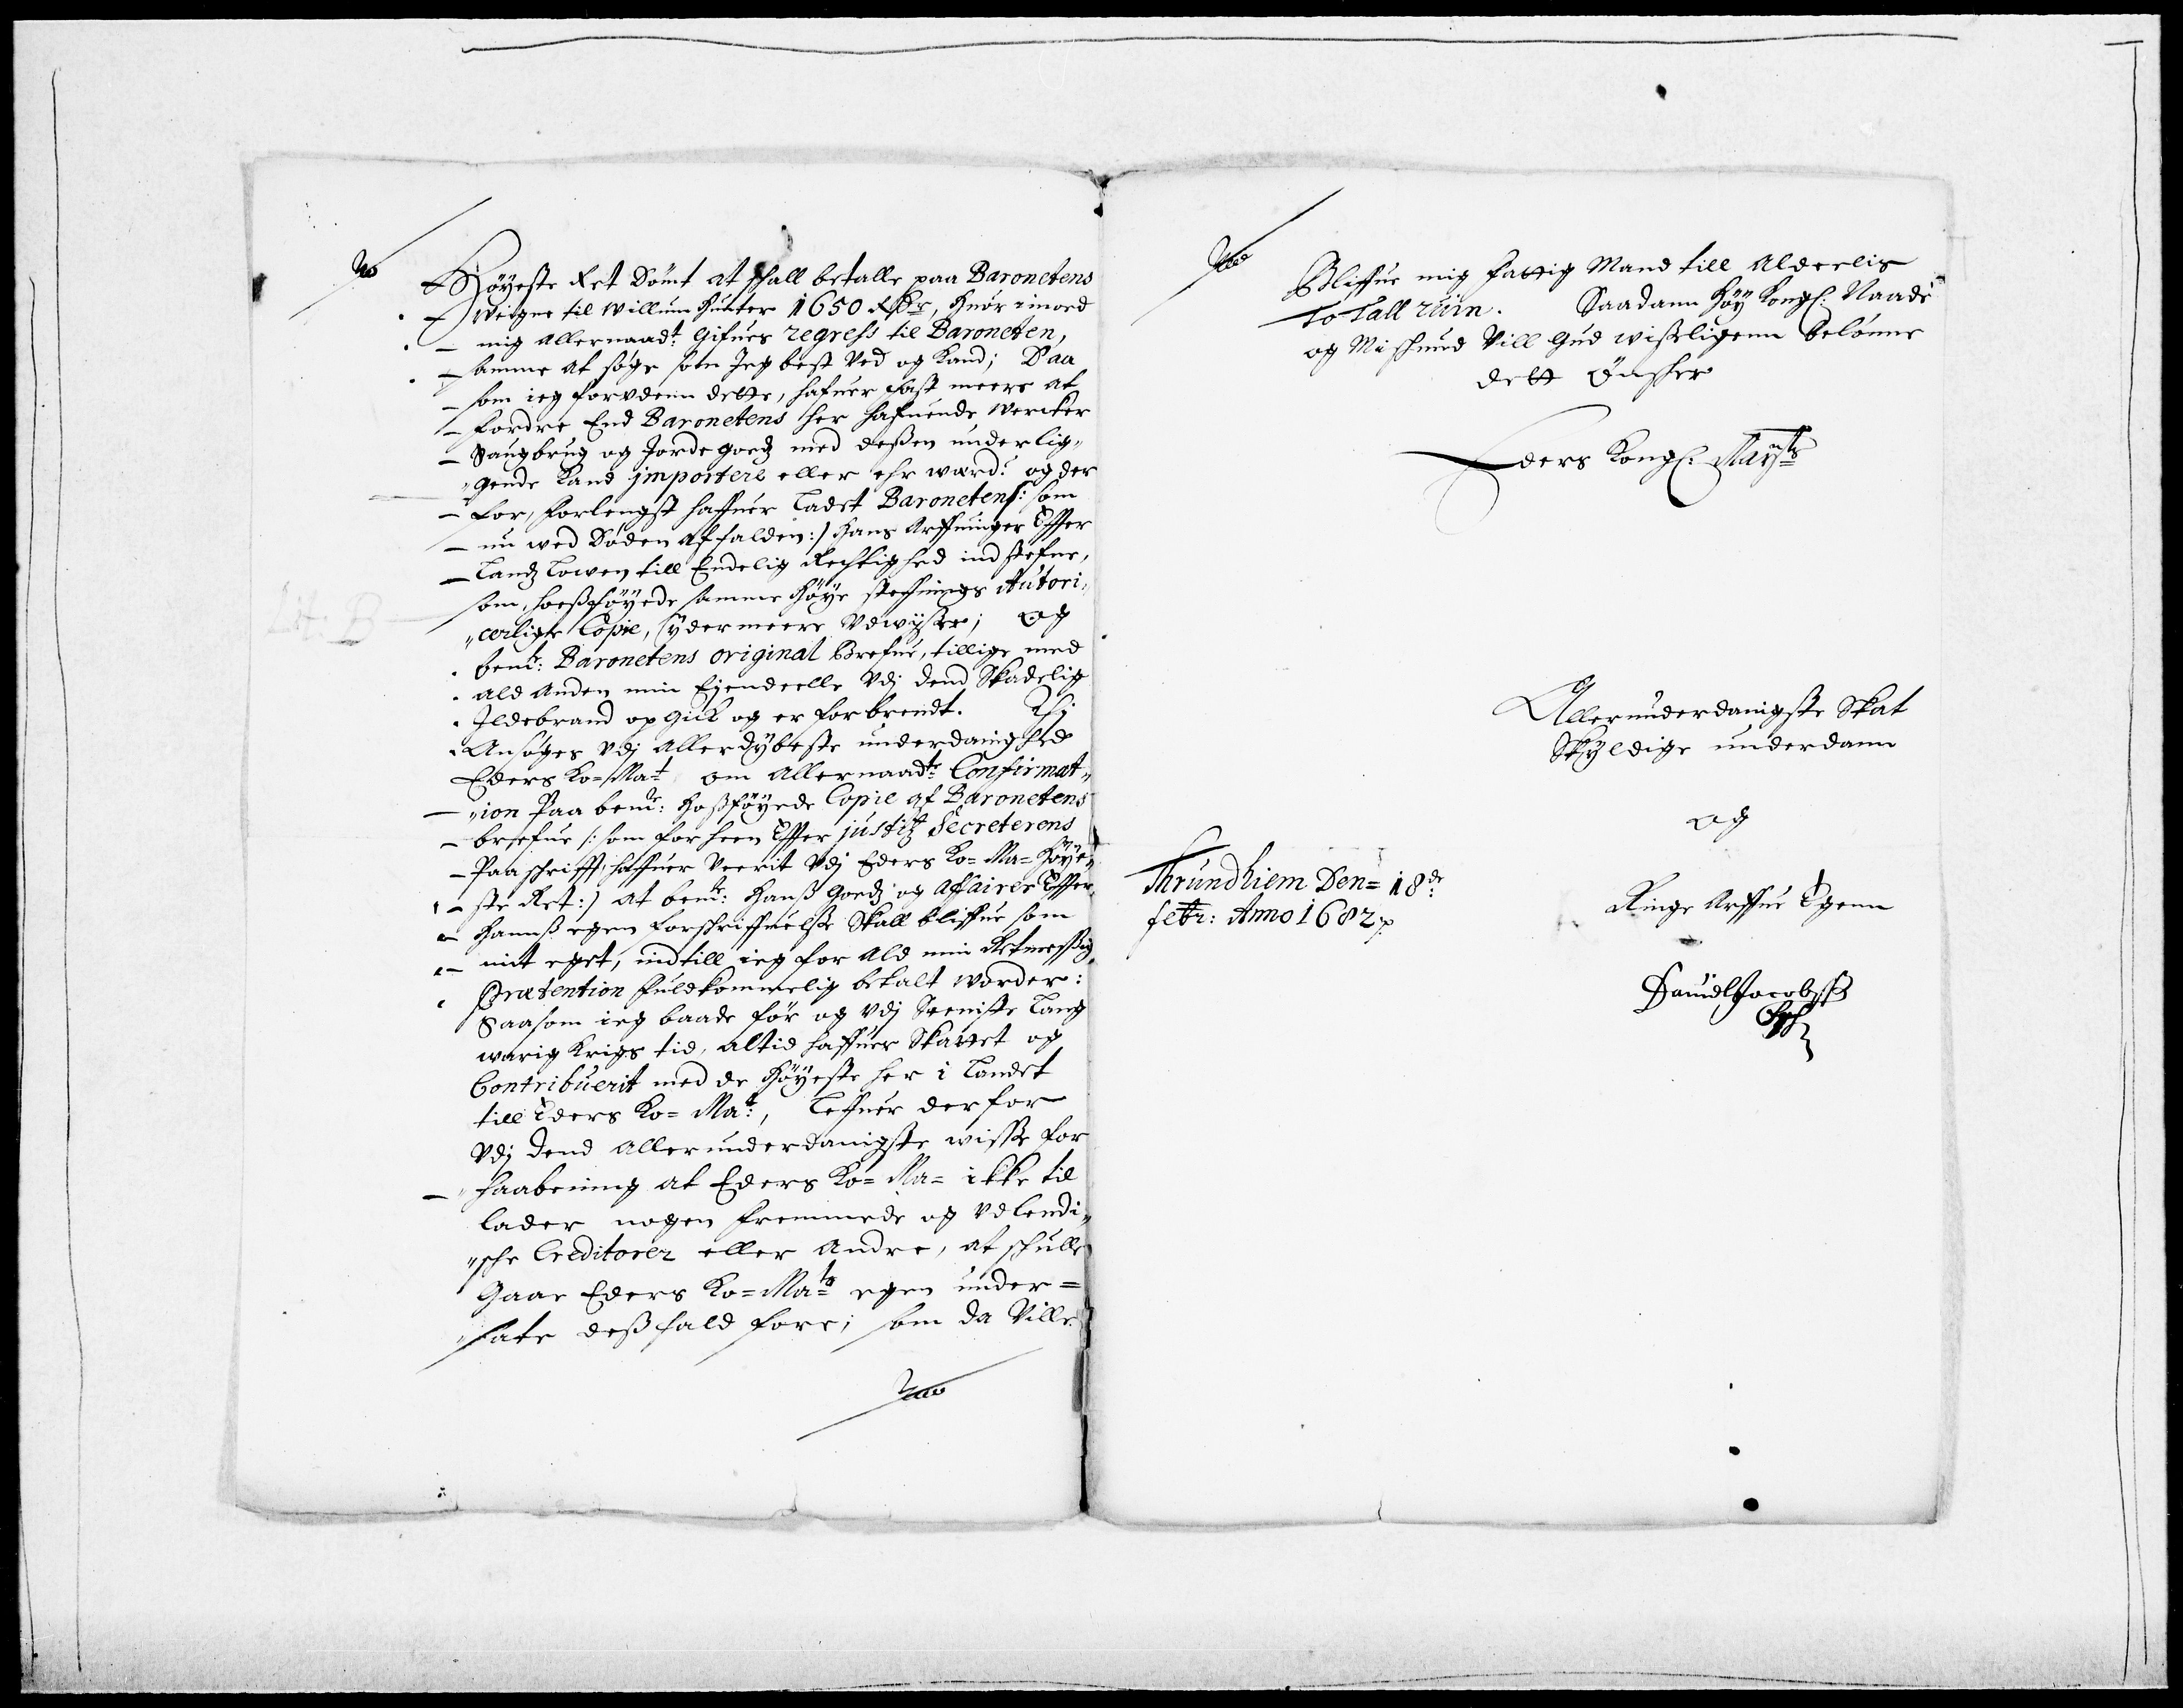 Höyeste Ret dömt at schall betalle paa Baronetens
weigne til Willum Hunter 1650 Rdr, huor imoed
mig allernaadt: gifues regress til Baroneten,
samme at söge som Jeg best ved og kand; Daa
som ieg foruden dette, hafuer fast meere at
fordre End Baronetens her hafuende Wercker
Saugbrug og Jordegoedz med deßen underlig„
„gende kand importere eller ehr wærd: og der
for, forlengst haffuer ladet Baronetens /: som
nu wed döden affalden :/ hans Arffuinger Effter
landz lowen till Endelig Rechtighed indstefne,
som, hoeßföyede samme höye stefnings Autori„
„cerlige Copie, ydermeere udwyser; og
Lit: B
bemt: Baronetens original Brefue, tillige med
ald anden min Ejendeelle udj dend skadelig
Jldebrand op gick og er forbrendt. Thj
Ansöges udj allerdybeste underdanighed
Eders Ko= Mat om allernaadte Confirmat„
„ion Paa bemte: hoßföyede Copie af Baronetens
brefue /: som forheen Effter justitz Secreterens
Paaschrifft, haffuer veerit udj Eders Ko= Ma= höye„
ste Ret :/ at bemte: hanß goedz og affairer Effter
hannß egen forschriffuelse skall bliffue som
mit eget, indtill ieg for ald min Retmessig
Prætention fuldkommelig betalt worder:
Saasom ieg baade för og udj seeniste lang
warig krigs tid, altid haffuer skattet og
Contribuerit med de höyeste her i landet
till Eders Ko= Mat:, leffuer derfor
udj dend allerunderdanigste wisse for
„haabening at Eders Ko= Ma= ikke til
lader nogen fremmede og udlendi„
„sche Creditorer eller andre, at schulle
gaae Eders Ko= Mats egen under=
„sate deßfald fore; som da ville
Bliffue mig fattig Mand till alderlis
to tall ruin. Saadann höy Kongl: Naade
og Miskund vill Gud wisseligenn belönne
dett önsker
Eders Kongl: Mayts
Allerunderdanigste skat
skyldige underdann
og
Ringe Arffue Egenn
Thrundhiem Den= 18de:
febr: Anno 1682
Dauidl Jacobsß